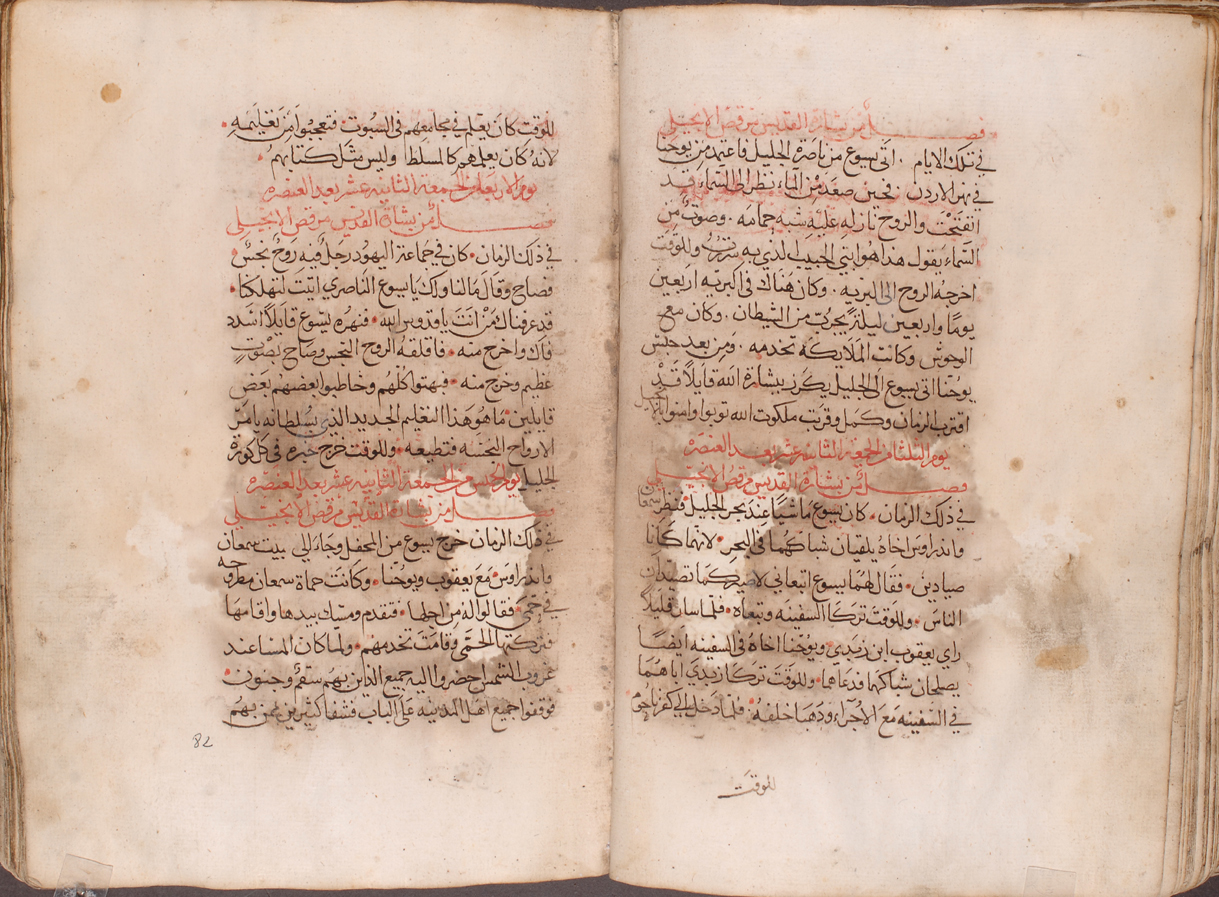 فصل من بشارة القديس مرقص الانجيلي
في تلك الايام . اتى يسوع من ناصرة الجليل فاعتمد من يوحنا
في نهر الاردن . فحين صعد من الماء نظر الى السماء قد
انفتحت والروح نازله عليه شبه حمامه . وصوت من
السماء يقول هذا هو ابني الحبيب الذي به سررت وللوقت
اخرجه الروح الى البريه . وكان هناك في البريه اربعين
يوما واربعين ليلة يجرب من الشيطان . وكان مع
الوحوش وكانت الملايكه تخدمه . ومن بعد حبس
يوحنا اتى يسوع الى الجليل يكرز ببشارة الله قايلا قد
اقترب الزمان وكمل وقربت ملكوت الله توبوا وامنوا بالانجيل
يوم الثلثا من الجمعة الثانية عشر بعد العنصره
فصل من بشارة القديس مرقص الانجيلي
في ذلك الزمان . كان يسوع ماشيا عند بحر الجليل فنظر سمعان
واندراوس اخاه يلقيان شباكهما في البحر . لانهما كانا
صيادين . فقال لهما يسوع اتبعاني لاصيركما تصيدان
الناس . وللوقت تركا السفينه وتبعاه . فلما سار قليلا
راي يعقوب ابن زبدي ويوحنا اخاه في السفينه ايضا
يصلحان شباكهما فدعاهما . وللوقت تركا زبدي اباهما
في السفينه مع الاجراء وذهبا خلفه . فلما دخل الى كفرناحوم
للوقت
للوقت كان يعلم في مجامعهم في السبوت . فتعجبوا من تعليمه .
لانه كان يعلمهم كالمسلط وليس مثل كتابهم .
يوم الاربعا من الجمعة الثانيه عشر بعد العنصره
فصل من بشارة القديس مرقص الانجيلي
في ذلك الزمان . كان في جماعة اليهود رجل فيه روح نجس .
فصاح وقال مالنا ولك يا يسوع الناصري اتيت لتهلكنا .
قد عرفناك من انت يا قدوس الله . فنهره يسوع قايلا اشدد
فاك واخرج منه . فاقلقه الروح النجس وصاح بصوت
عظيم وخرج منه . فبهتوا كلهم وخاطبوا بعضهم بعض
قايلين . ما هو هذا التعليم الجديد الذي بسلطانه يامر
الارواح النجسه فتطيعه . وللوقت خرج خبره في كل كورة
الجليل يوم الخميس من الجمعة الثانيه عشر بعد العنصره
فصل من بشارة القديس مرقص الانجيلي
في ذلك الزمان خرج يسوع من المحفل وجاء الى بيت سمعان
واندراوس مع يعقوب ويوحنا . وكانت حماة سمعان مطروحه
في حمى . فقالوا له من اجلها . فتقدم ومسك بيدها واقامها
فتركتها الحمى وقامت تخدمهم . ولما كان المساء عند
غروب الشمس احضروا اليه جميع الذين بهم سقم وجنون .
فوقفوا جميع اهل المدينه على الباب فشفا كثيرين ممن بهم
82